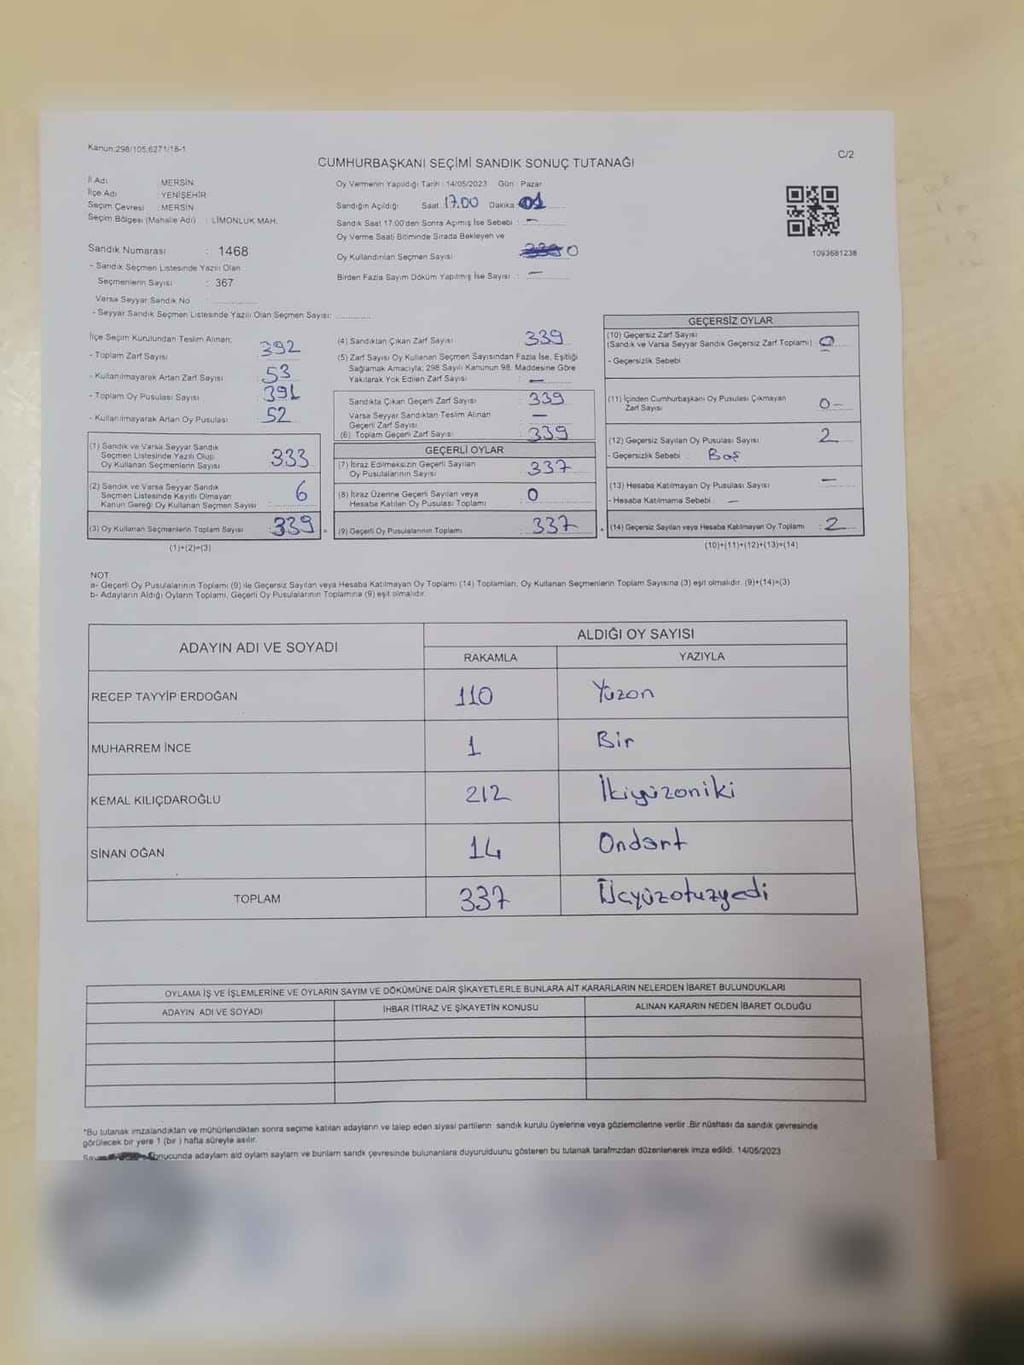 Kanun:298/105,6271/18-1
CUMHURBAŞKANI SEÇİMİ SANDIK SONUÇ TUTANAĞI
C/2
İl Adı : MERSİN
İlçe Adı : YENİŞEHİR
Seçim Çevresi : MERSİN
Seçim Bölgesi (Mahalle Adı) : LİMONLUK MAH.
Sandık Numarası : 1468
- Sandık Seçmen Listesinde Yazılı Olan
Seçmenlerin Sayısı : 367
Varsa Seyyar Sandık No :
- Seyyar Sandık Seçmen Listesinde Yazılı Olan Seçmen Sayısı:
Oy Vermenin Yapıldığı Tarih : 14/05/2023 Gün : Pazar
Sandığın Açıldığı: Saat 17.00 Dakika 01
Sandık Saat 17.00'den Sonra Açılmış İse Sebebi : —
Oy Verme Saati Bitiminde Sırada Bekleyen ve
Oy Kullandırılan Seçmen Sayısı 0
Birden Fazla Sayım Döküm Yapılmış İse Sayısı : —
1093681238
İlçe Seçim Kurulundan Teslim Alınan;
- Toplam Zarf Sayısı : 392
- Kullanılmayarak Artan Zarf Sayısı : 53
- Toplam Oy Pusulası Sayısı : 391
- Kullanılmayarak Artan Oy Pusulası : 52
(1) Sandık ve Varsa Seyyar Sandık
Seçmen Listesinde Yazılı Olup
Oy Kullanan Seçmenlerin Sayısı : 333
(2) Sandık ve Varsa Seyyar Sandık
Seçmen Listesinde Kayıtlı Olmayan
Kanun Gereği Oy Kullanan Seçmen Sayısı : 6
(3) Oy Kullanan Seçmenlerin Toplam Sayısı : 339
(1)+(2)=(3)
(4) Sandıktan Çıkan Zarf Sayısı : 339
(5) Zarf Sayısı Oy Kullanan Seçmen Sayısından Fazla İse, Eşitliği
Sağlamak Amacıyla; 298 Sayılı Kanunun 98. Maddesine Göre
Yakılarak Yok Edilen Zarf Sayısı : —
Sandıkta Çıkan Geçerli Zarf Sayısı : 339
Varsa Seyyar Sandıktan Teslim Alınan
Geçerli Zarf Sayısı : —
(6) Toplam Geçerli Zarf Sayısı : 339
GEÇERLİ OYLAR
(7) İtiraz Edilmeksizin Geçerli Sayılan
Oy Pusulalarının Sayısı : 337
(8) İtiraz Üzerine Geçerli Sayılan veya
Hesaba Katılan Oy Pusulası Toplamı : 0
(9) Geçerli Oy Pusulalarının Toplamı : 337
GEÇERSİZ OYLAR
(10) Geçersiz Zarf Sayısı
(Sandık ve Varsa Seyyar Sandık Geçersiz Zarf Toplamı) : 0
- Geçersizlik Sebebi :
(11) İçinden Cumhurbaşkanı Oy Pusulası Çıkmayan
Zarf Sayısı : 0-
(12) Geçersiz Sayılan Oy Pusulası Sayısı : 2
- Geçersizlik Sebebi : Boş
(13) Hesaba Katılmayan Oy Pusulası Sayısı : —
- Hesaba Katılmama Sebebi : —
(14) Geçersiz Sayılan veya Hesaba Katılmayan Oy Toplamı : 2
(10)+(11)+(12)+(13)=(14)
NOT
a- Geçerli Oy Pusulalarının Toplamı (9) ile Geçersiz Sayılan veya Hesaba Katılmayan Oy Toplamı (14) Toplamları, Oy Kullanan Seçmenlerin Toplam Sayısına (3) eşit olmalıdır. (9)+(14)=(3)
b- Adayların Aldığı Oyların Toplamı, Geçerli Oy Pusulalarının Toplamına (9) eşit olmalıdır.
ADAYIN ADI VE SOYADI
ALDIĞI OY SAYISI
RAKAMLA YAZIYLA
RECEP TAYYİP ERDOĞAN 110 Yüzon
MUHARREM İNCE 1 Bir
KEMAL KILIÇDAROĞLU 212 İkiyüzoniki
SİNAN OĞAN 14 Ondört
TOPLAM 337 Üçyüzotuzyedi
OYLAMA İŞ VE İŞLEMLERİNE VE OYLARIN SAYIM VE DÖKÜMÜNE DAİR ŞİKAYETLERLE BUNLARA AİT KARARLARIN NELERDEN İBARET BULUNDUKLARI
ADAYIN ADI VE SOYADI İHBAR İTİRAZ VE ŞİKAYETİN KONUSU ALINAN KARARIN NEDEN İBARET OLDUĞU
*Bu tutanak imzalandıktan ve mühürlendikten sonra seçime katılan adayların ve talep eden siyasi partilerin sandık kurulu üyelerine veya gözlemcilerine verilir. Bir nüshası da sandık çevresinde
görülecek bir yere 1 (bir ) hafta süreyle asılır.
adayların ald oyların sayıları ve bunların sandık çevresinde bulunanlara duyurulduunu gösteren bu tutanak tarafmzdan düzenlenerek imza edildi. 14/05/2023